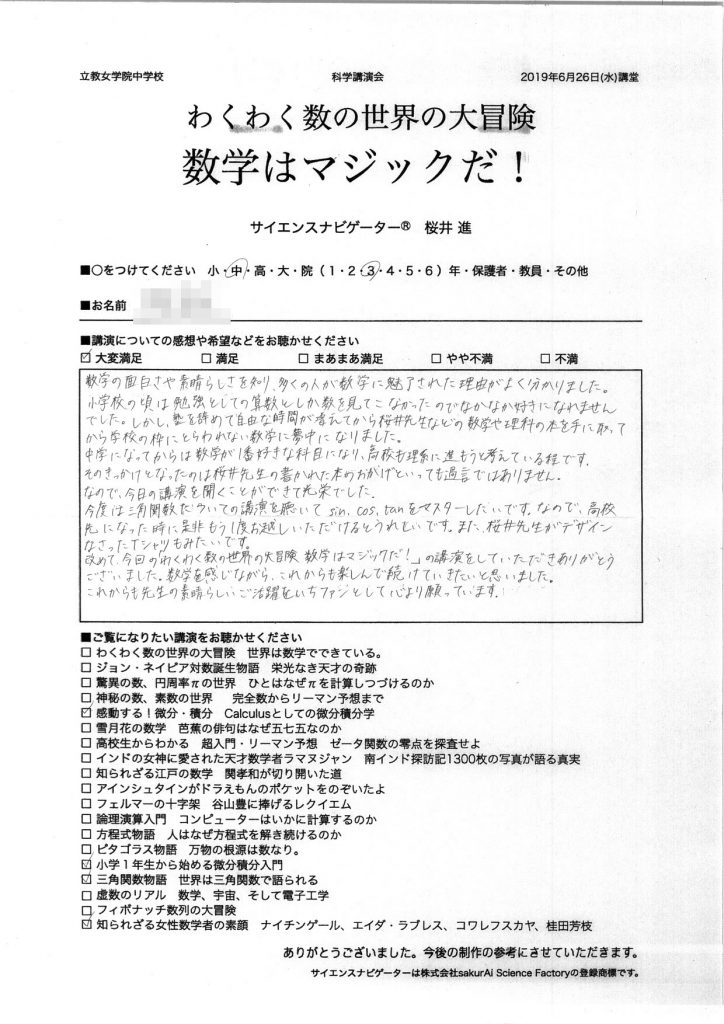 立教女学院中学校 科学講演会 2019年6月26日(水)講堂
わくわく数の世界の大冒険
数学はマジックだ！
サイエンスナビゲーター® 桜井 進
■○をつけてください 小・中・高・大・院（1・2・3・4・5・6）年・保護者・教員・その他
■お名前
■講演についての感想や希望などをお聴かせください
☑大変満足 □満足 □まあまあ満足 □やや不満 □不満
数学の面白さや素晴らしさを知り、多くの人が数学に魅了された理由がよく分かりました。
小学校の頃は勉強としての算数としか数を見てこなかったのでなかなか好きになれません
でした。しかし、塾を辞めて自由な時間が増えてから桜井先生などの数学や理科の本を手に取って
から学校の枠にとらわれない数学に夢中になりました。
中学になってからは数学が1番好きな科目になり、高校も理系に進もうと考えている程です。
そのきっかけとなったのは桜井先生の書かれた本のおかげといっても過言ではありません。
なので、今日の講演を聞くことができて光栄でした。
今度は三角関数についての講演を聴いて sin, cos, tanをマスターしたいです。なので、高校
生になった時に是非もう1度お越しいただけるとうれしいです。また、桜井先生がデザイン
なさったTシャツもみたいです。
改めて、今回の「わくわく数の世界の大冒険 数学はマジックだ！」の講演をしていただきありがとう
ございました。数学を感じながら、これからも楽しんで続けていきたいと思いました。
これからも先生の素晴らしいご活躍をいちファンとして心より願っています。
■ご覧になりたい講演をお聴かせください
□わくわく数の世界の大冒険 世界は数学でできている。
□ジョン・ネイピア対数誕生物語 栄光なき天才の奇跡
□驚異の数、円周率πの世界 ひとはなぜπを計算しつづけるのか
□神秘の数、素数の世界 完全数からリーマン予想まで
☑感動する！微分・積分 Calculusとしての微分積分学
□雪月花の数学 芭蕉の俳句はなぜ五七五なのか
□高校生からわかる 超入門・リーマン予想 ゼータ関数の零点を探査せよ
□インドの女神に愛された天才数学者ラマヌジャン 南インド探訪記1300枚の写真が語る真実
□知られざる江戸の数学 関孝和が切り開いた道
□アインシュタインがドラえもんのポケットをのぞいたよ
□フェルマーの十字架 谷山豊に捧げるレクイエム
□論理演算入門 コンピューターはいかに計算するのか
□方程式物語 人はなぜ方程式を解き続けるのか
□ピタゴラス物語 万物の根源は数なり。
☑小学1年生から始める微分積分入門
☑三角関数物語 世界は三角関数で語られる
□虚数のリアル 数学、宇宙、そして電子工学
□フィボナッチ数列の大冒険
☑知られざる女性数学者の素顔 ナイチンゲール、エイダ・ラブレス、コワレフスカヤ、桂田芳枝
ありがとうございました。今後の制作の参考にさせていただきます。
サイエンスナビゲーターは株式会社sakurAi Science Factoryの登録商標です。